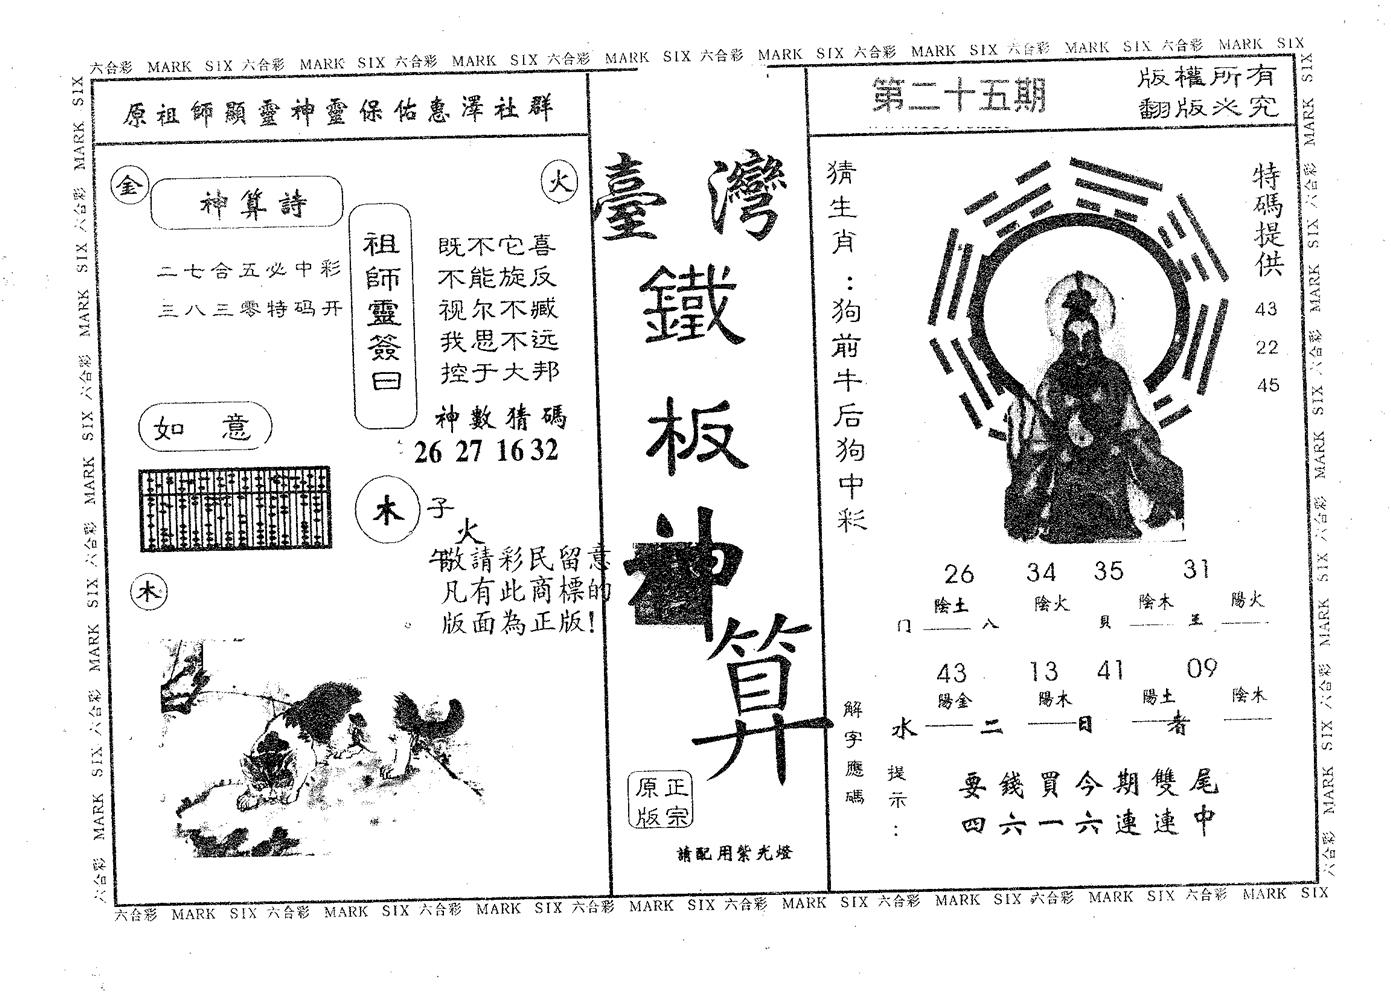 六合彩 MARK SIX 六合彩 MARK SIX 六合彩 MARK SIX 六合彩 MARK SIX 六合彩 MARK SIX 六合彩 MARK SIX 六合彩 MARK SIX 六合彩 MARK SIX
原祖師顯靈神靈保佑惠澤社群
金
神算詩
火
二七合五必中彩
三八三零特码开
祖師靈簽曰
既不它喜
不能旋反
视尔不臧
我思不远
控于大邦
神數猜碼
26 27 16 32
如意
木
子
火
午
敬請彩民留意
凡有此商標的
版面為正版!
木
臺灣
鐵
板
神
算
正宗
原版
請配用紫光燈
第二十五期
版權所有
翻版必究
猜生肖:狗前牛后狗中彩
特碼提供
43
22
45
26 34 35 31
陰土 陰火 陰木 陽火
门 八 貝 王
43 13 41 09
陽金 陽木 陽土 陰木
水 二 日 者
解字應碼
提示:
要錢買今期雙尾
四六一六連連中
六合彩 MARK SIX 六合彩 MARK SIX 六合彩 MARK SIX 六合彩 MARK SIX 六合彩 MARK SIX 六合彩 MARK SIX 六合彩 MARK SIX 六合彩 MARK SIX
MARK SIX 六合彩 MARK SIX 六合彩 MARK SIX 六合彩 MARK SIX 六合彩 MARK SIX 六合彩
MARK SIX 六合彩 MARK SIX 六合彩 MARK SIX 六合彩 MARK SIX 六合彩 MARK SIX 六合彩